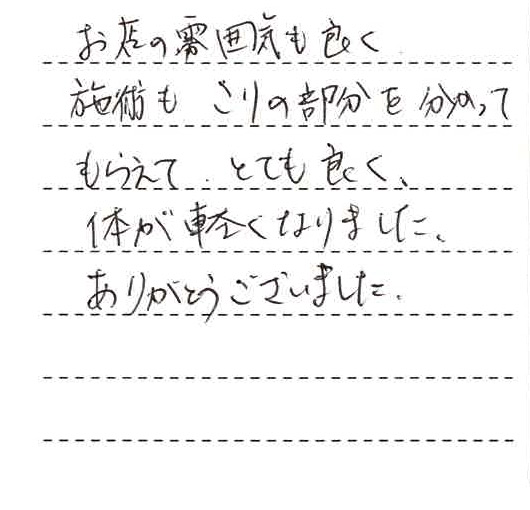 お店の雰囲気も良く
施術も こりの部分を分かって
もらえて、とても良く、
体が軽くなりました。
ありがとうございました。